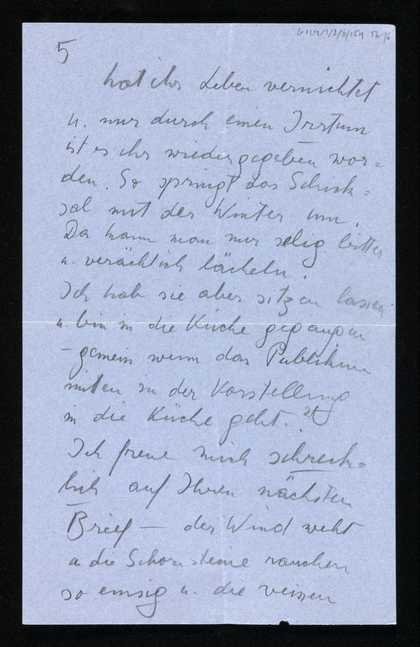 5
hat ihr Leben vernichtet
u. nur durch einen Irrtum
ist es ihr wiedergegeben wor=
den. So springt das Schick=
sal mit der Winter um.
Da kann man nur selig bitter
u. verächtlich lächeln.
Ich hab sie aber sitzen lassen
u. bin in die Küche gegangen
– gemein wenn das Publikum
mitten in der Vorstellung
in die Küche geht.
Ich freue mich schreck=
lich auf Ihren nächsten
Brief – der Wind weht
u die Schornsteine rauchen
so emsig u. die weissen